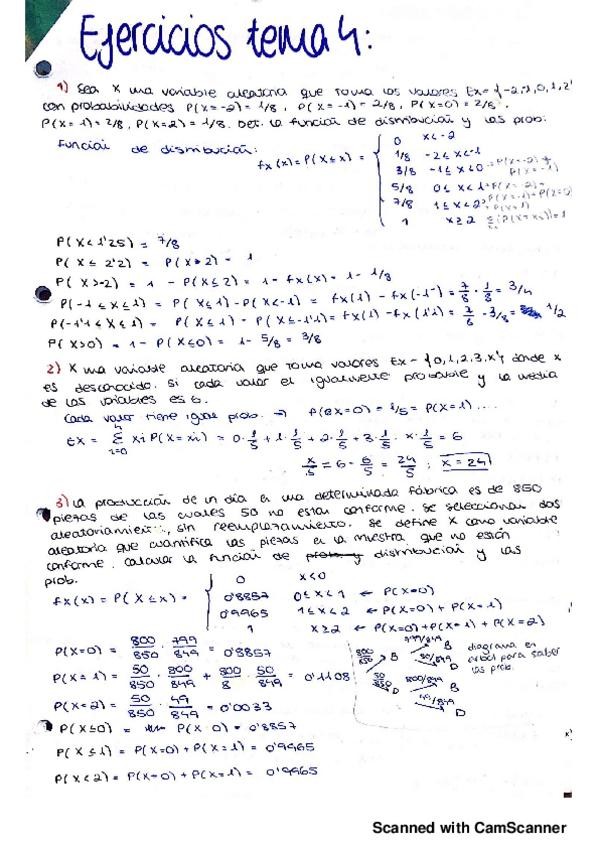 Ejercicios tema 4:
1) Sea X una variable aleatoria que toma los valores Ex={-2,-1,0,1,2}
con probabilidades P(X=-2)=1/8, P(X=-1)=2/8, P(X=0)=2/8,
P(X=1)=2/8, P(X=2)=1/8. Det. la función de distribución y las prob:
Función de distribución:
fx(x)=P(X≤x) =
0 x<-2
1/8 -2≤x<-1
3/8 -1≤x<0 =P(X=-2)+P(X=-1)
5/8 0≤x<1
7/8 1≤x<2
1 x≥2
P(X<1'25) = 7/8
P(X≤2'2) = P(X>2) = 1
P(X>-2) = 1 - P(X≤2) = 1 - fx(x) = 1 - 1/8
P(-1≤X≤1) = P(X≤1) - P(X<-1) = fx(1) - fx(-1⁻) = 7/8 · 1/8 = 3/4
P(-1'1<X≤1) = P(X≤1) - P(X≤-1'1) = fx(1) - fx(1'1) = 1/2
P(X>0) = 1 - P(X≤0) = 1 - 5/8 = 3/8
2) X una variable aleatoria que toma valores Ex={0,1,2,3,x}, donde x
es desconocido. Si cada valor el igualmente probable y la media
de las variables es 6.
Cada valor tiene igual prob. → P(X=0) = 1/5 = P(X=1)....
EX = Σ xi P(X=xi) = 0·1/5 + 1·1/5 + 2·1/5 + 3·1/5 · x·1/5 = 6
x/5 = 6 - 6/5 = 24/5 ; x = 24
3) La producción de un día en una determinada fábrica es de 850
piezas de las cuales 50 no estan conforme. Se seleccionan dos
sin reemplazamiento. Se define X como variable
aleatoria que cuantifica las piezas en la muestra que no están
conforme. Calcular la función de distribución y las
prob.
fx(x) = P(X≤x) =
0 x<0
0'8857 0≤x<1 ← P(X=0)
0'9965 1≤x<2 ← P(X=0) + P(X=1)
1 x≥2 ← P(X=0)+P(X=1) + P(X=2)
P(X=0) = 800/850 · 799/849 = 0'8857
P(X=1) = 50/850 · 800/849 + 800/8 · 50/849 = 0'1108
P(X=2) = 50/850 · 49/849 = 0'0033
800/850 B 799/849 B
50/849 D
50/850 D 800/849 B
49/849 D
diagrama en
árbol para saber
las prob.
P(X≤0) = P(X 0) = 0'8857
P(X≤1) = P(X=0) + P(X=1) = 0'9965
P(X<2) = P(X=0) + P(X=1) = 0'9965
Scanned with CamScanner